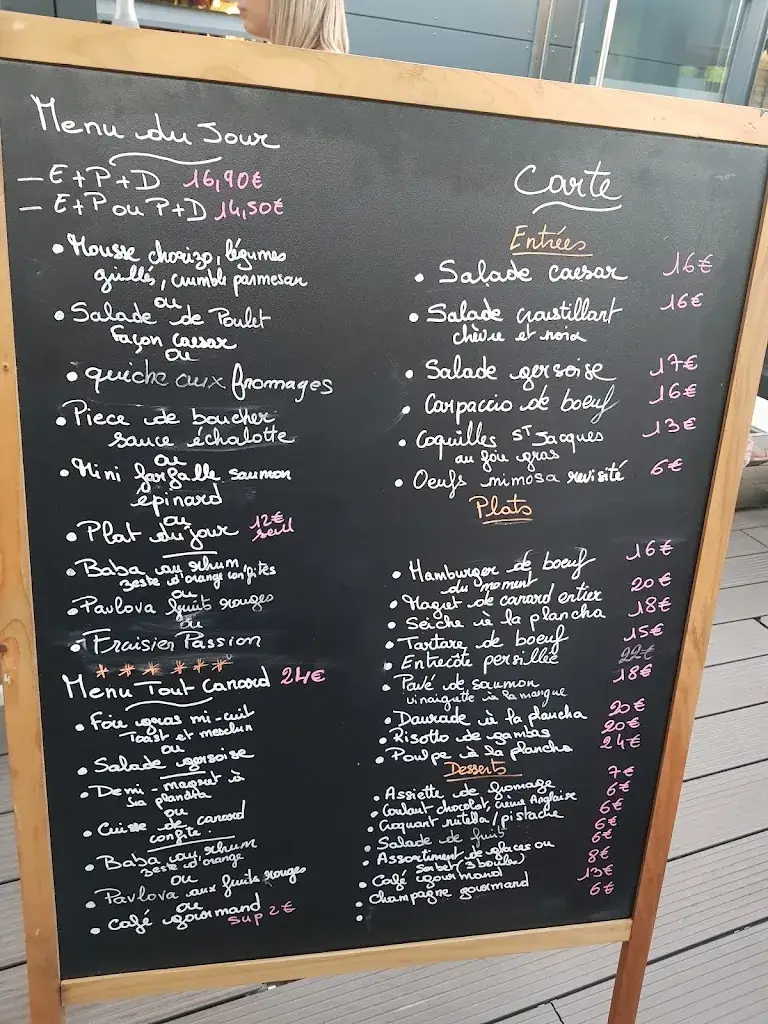 Menu du Jour
- E+P+D 16,90€
- E+P ou P+D 14,50€
• Mousse chorizo, légumes
grillés, crumble parmesan
ou
• Salade de Poulet
façon caesar
ou
• quiche aux fromages
• Piece de boucher
sauce échalotte
ou
• Mini farfalle saumon
épinard
ou
• Plat du jour 12€
seul
• Baba au rhum
zeste d'orange confites
ou
• Pavlova fruits rouges
ou
• Fraisier Passion
******
Menu Tout Canard 24€
• Foie gras mi-cuit
Toast et mesclun
ou
• Salade gersoise
• Demi-magret à
la plancha
ou
• Cuisse de canard
confite.
• Baba au rhum
zeste d'orange
ou
• Pavlova aux fruits rouges
ou
• Café gourmand
sup 2€
Carte
Entrées
• Salade caesar 16€
• Salade croustillant 16€
chèvre et noix
• Salade gersoise 17€
• Carpaccio de boeuf 16€
• Coquilles St Jacques 13€
au foie gras
• Oeufs mimosa revisité 6€
Plats
• Hamburger de boeuf 16€
du moment
• Magret de canard entier 20€
• Seiche à la plancha 18€
• Tartare de boeuf 15€
• Entrecôte persillée 22€
• Pavé de saumon 18€
vinaigrette à la mangue
• Daurade à la plancha 20€
• Risotto de gambas 20€
• Poulpe à la plancha 24€
Desserts
• Assiette de fromage 7€
• Coulant chocolat, crème Anglaise 6€
• Croquant nutella/pistache 6€
• Salade de fruit 6€
• Assortiment de glaces ou 6€
Sorbet (3 boules)
• Café gourmand 8€
• Champagne gourmand 13€
• 6€